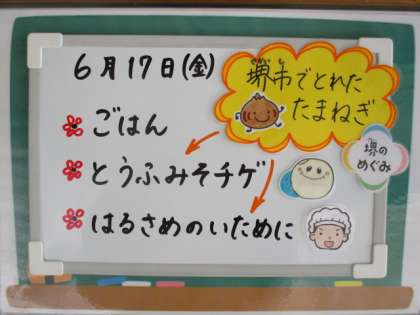 6月17日(金)
堺市でとれた
たまねぎ
ごはん
堺の
めぐみ
とうふみそチゲ
はるさめのいために